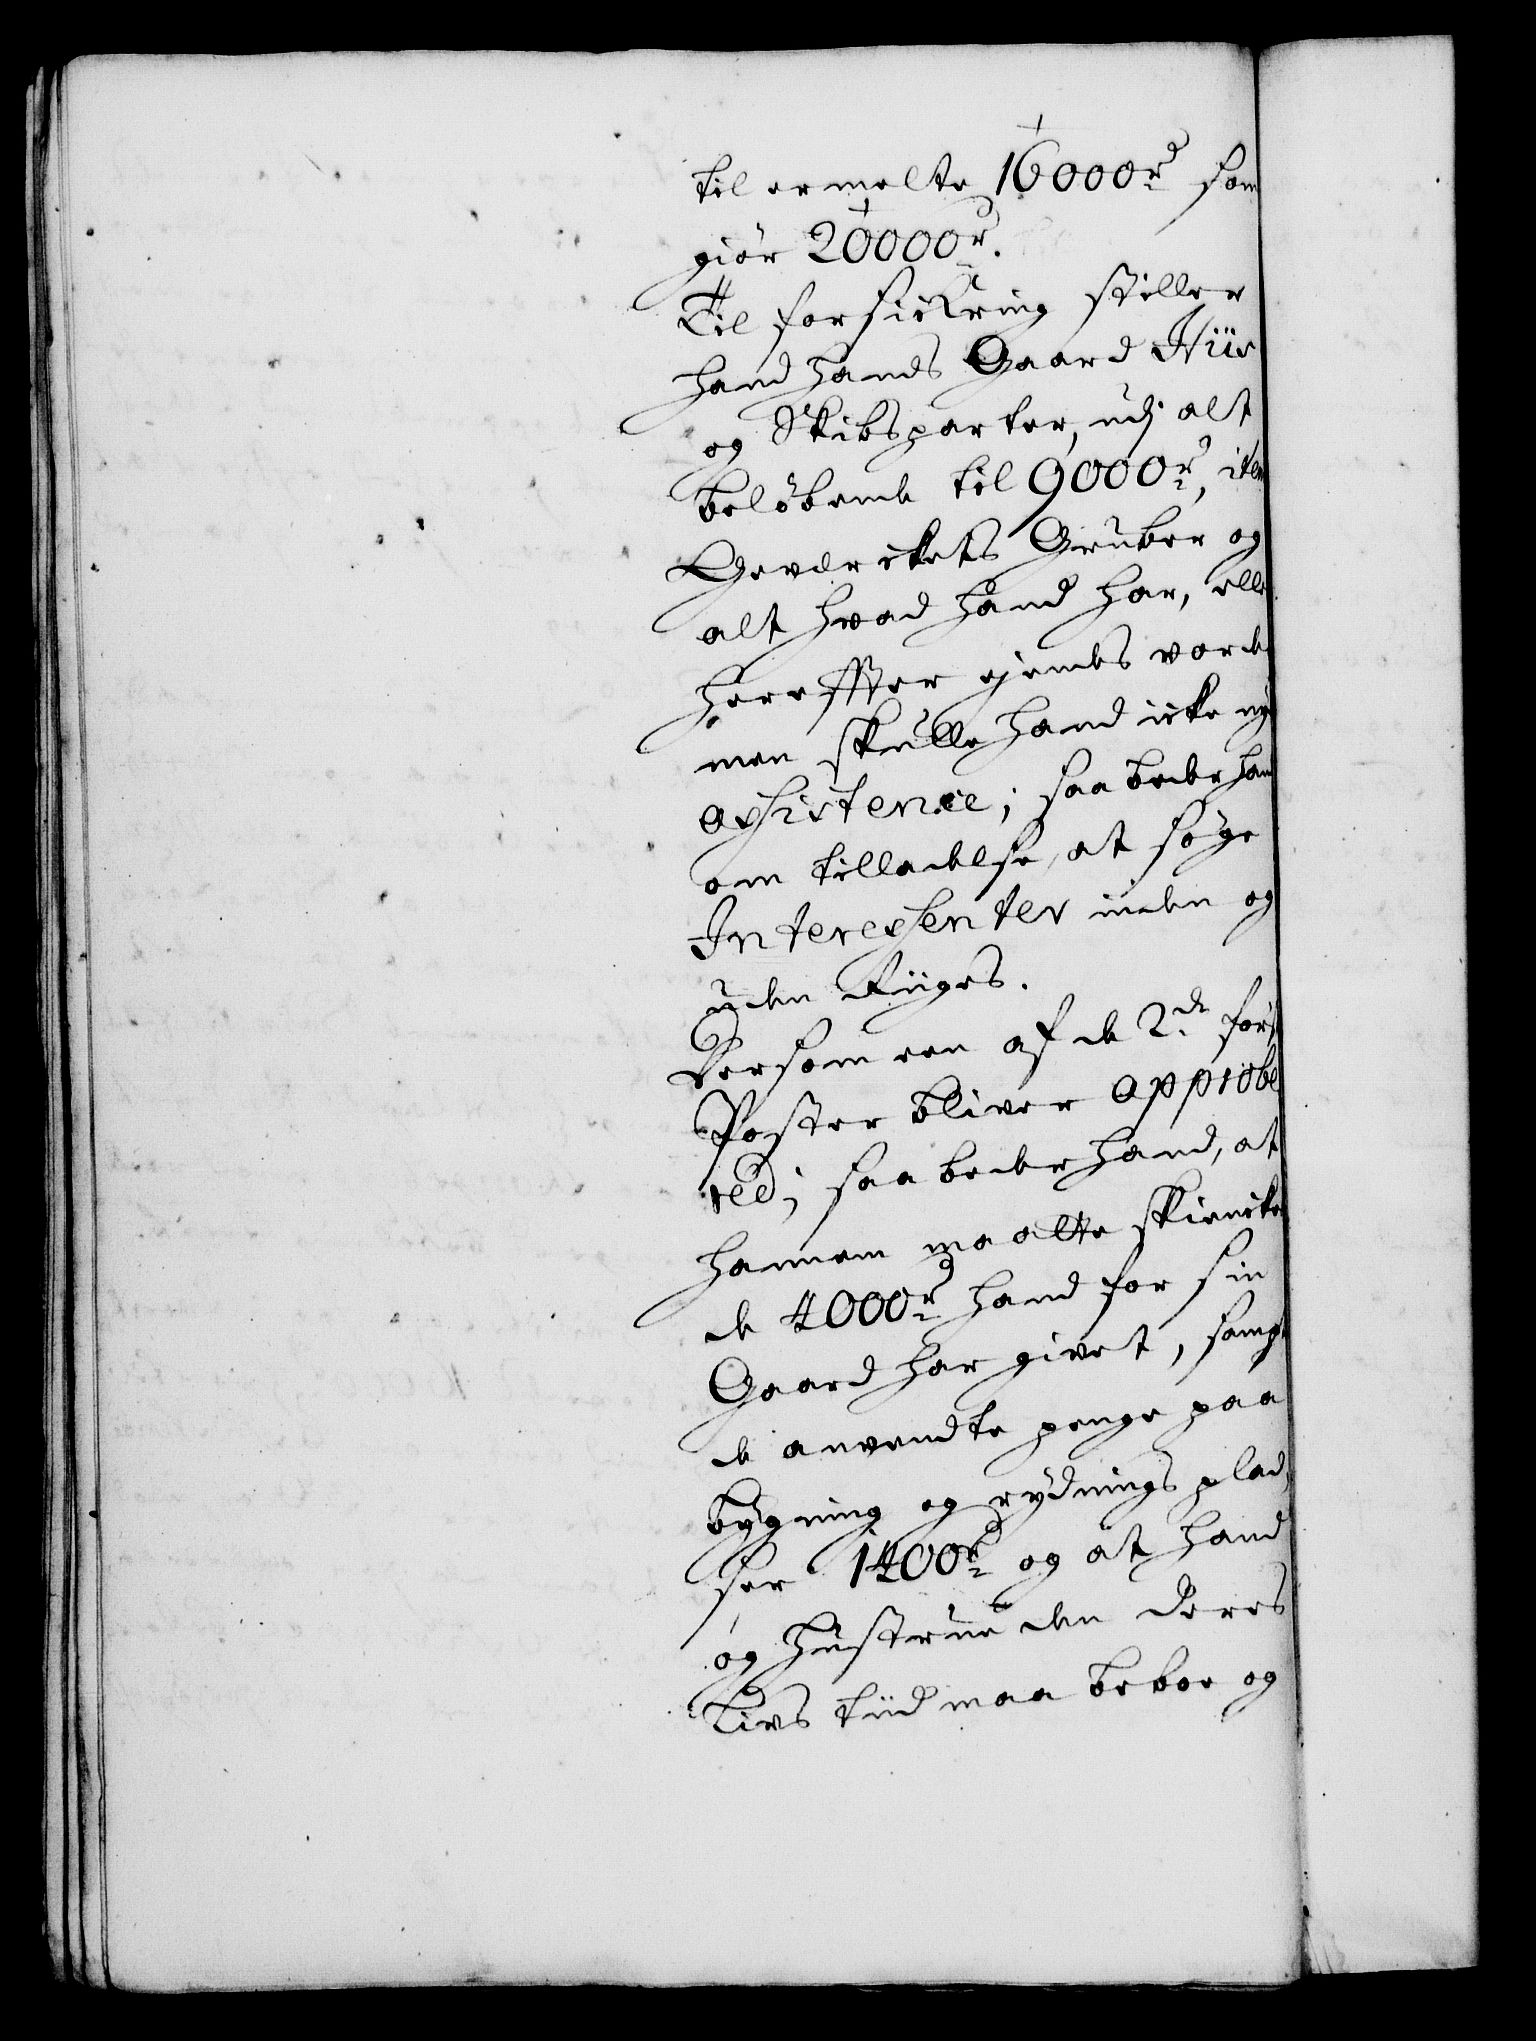 til ermelte 16000 rd som
giör 20000 rd.
Til forsickring stiller
hand hands Gaard Huus
og Skibsparter, udj alt
belöbende til 9000 rd, item
Gewerckets Gruber og
alt hvad hand har, elle
hereffter ejendes vorde
men skulle hand icke nyde
assistence; saa beder hand
om tilladelse, at söge
Interessenter inden og
uden Riiges.
Dersom een af de 2de förste
Poster bliver approbe
red; saa beder hand, at
hannem maatte skienckes
de 4000 rd hand for sin
Gaard har givet, sampt
de anvendte penge paa
bygning og rydnings plad,
ser 1400 rd og at hand
og Hustrue den deres
Livs tiid maa beboe og